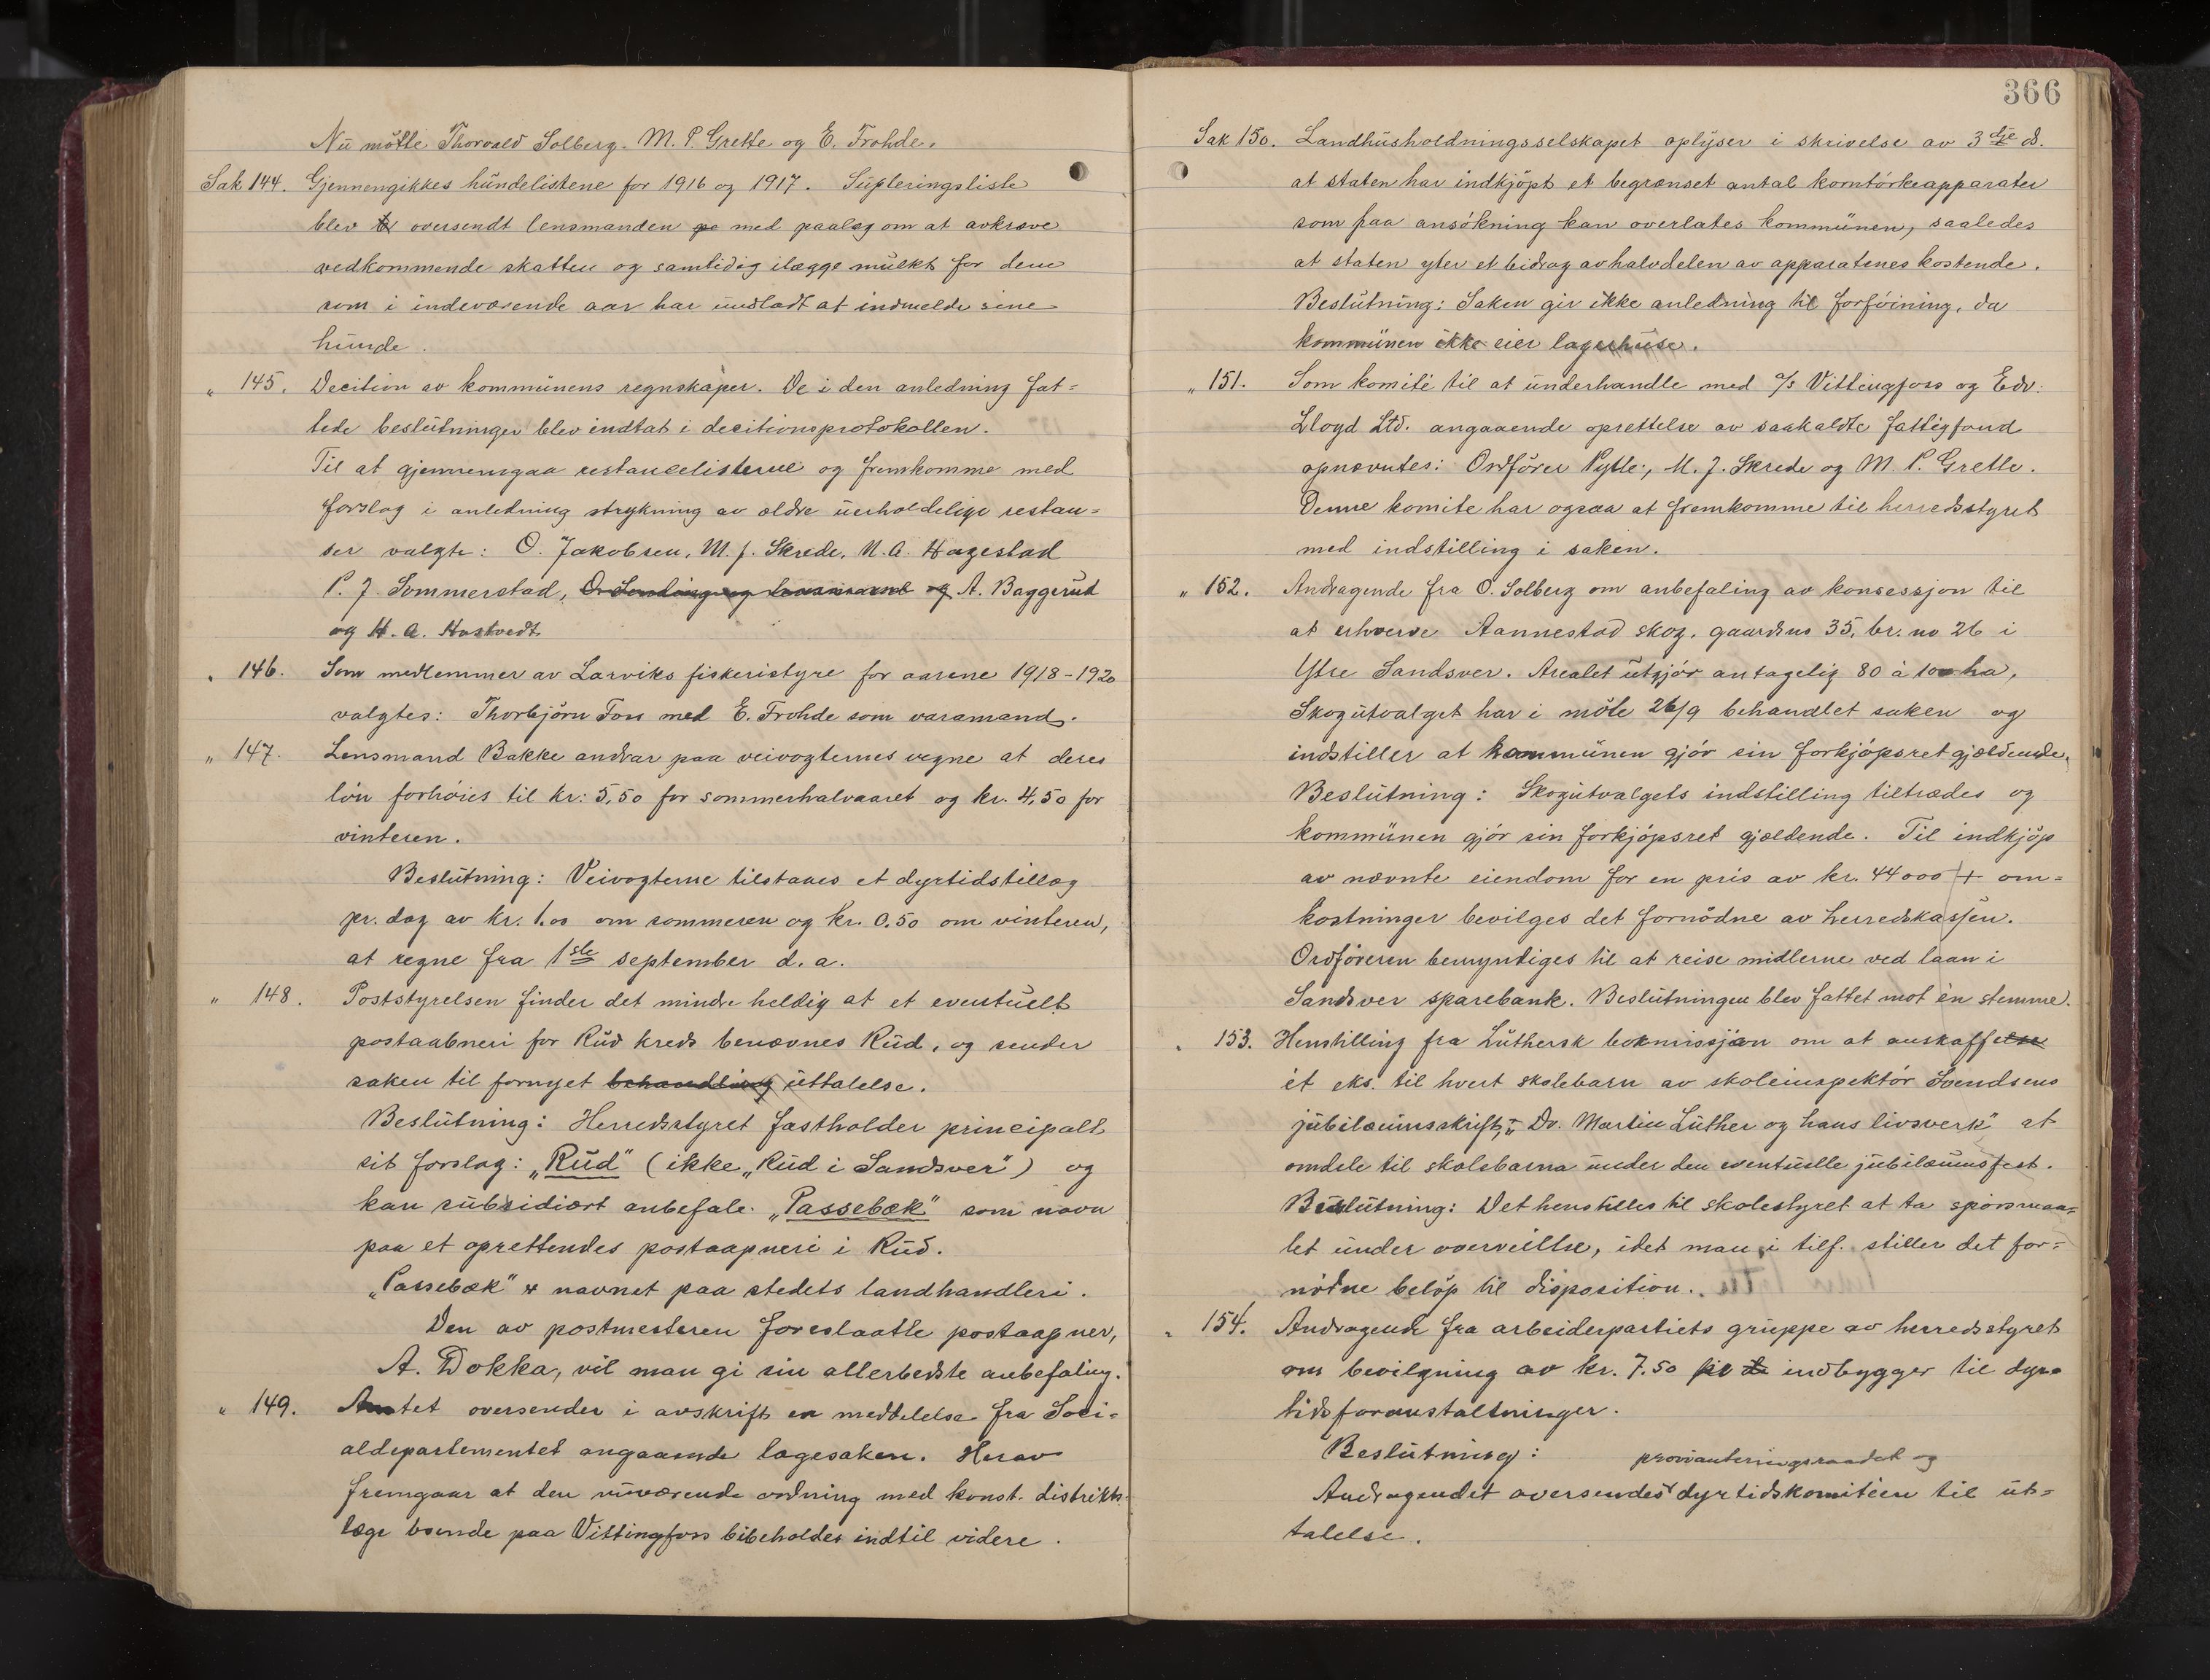 Nu møtte Thorvald Solberg. M. P. Grette og E. Frohde.
Sak 144. Gjennengikkes hundelistene for 1916 og 1917. Supleringsliste
blev oversendt lensmanden med paalæg om at avkræve
vedkommende skatten og samtidig ilægge mulkt for dem
som i indeværende aar har undladt at indmelde sine
hunde.
" 145. Decition av kommunens regnskaper. De i den anledning fat=
tede beslutninger blev indtat i decitionsprotokollen.
Til at gjennemgaa restancelisterne og fremkomme med
forslag i anledning strykning av ældre uerholdelige restan=
ser valgte: O. Jakobsen, M. J. Skrede, N. A. Hagestad
P. J. Sommerstad, og A. Baggerud
og H. A. Hostvedt
" 146. Som medlemmer av Larviks fiskeristyre for aarene 1918-1920
valgtes: Thorbjørn Foss med E. Frohde som varamand.
" 147. Lensmand Bakke andrar paa veivogternes vegne at deres
løn forhøies til kr: 5,50 for sommerhalvaaret og kr. 4,50 for
vinteren.
Beslutning: Veivogterne tilstaaes et dyrtidstillæg
pr. dag av kr. 1.00 om sommeren og kr. 0.50 om vinteren,
at regne fra 1ste september d. a.
" 148. Poststyrelsen finder det mindre heldig at et eventuelt
postaabneri for Rud kreds benævnes Rud, og sender
saken til fornyet behandling uttalelse.
Beslutning: Herredsstyret fastholder principalt
sit forslag: „Rud" (ikke „Rud i Sandsver") og
kan subsidiært anbefale „Passebæk" som navn
paa et oprettendes postaapneri i Rud.
„Passebæk" er navnet paa stedets landhandleri.
Den av postmesteren foreslaatte postaapner,
A. Dokka, vil man gi sin allerbedste anbefaling.
" 149. Amtet oversender i avskrift en meddelelse fra Soci=
aldepartementet angaaende lægesaken. Herav
fremgaar at den nuværende ordning med konst. distrikts-
læge boende paa Vittingfoss bibeholdes indtil videre.
366
Sak 150. Landhusholdningsselskapet oplyser i skrivelse av 3dje ds.
at staten har indkjøpt et begrænset antal korntørkeapparater
som paa ansøkning kan overlates kommunen, saaledes
at staten yter et bidrag av halvdelen av apparatenes kostende.
Beslutning: Saken gir ikke anledning til forføining, da
kommunen ikke eier lagerhuse.
" 151. Som komité til at underhandle med A/S Vittingfoss og Edv:
Lloyd Ltd. angaaende oprettelse av saakaldte fattigfond
opnævntes: Ordfører Pytte, M. J. Skrede og M. P. Grette.
Denne komite har ogsaa at fremkomme til herredsstyret
med indstilling i saken.
" 152. Andragende fra O. Solberg om anbefaling av konsessjon til
at erhverve Aannestad skog, gaardsno 35, br. no 26 i
Ytre Sandsver. Arealet utgjør antagelig 80 à 100 ha,
Skogutvalget har i møte 26/9 behandlet saken og
indstiller at kommunen gjør sin forkjøpsret gjældende.
Beslutning: Skogutvalgets indstilling tiltrædes og
kommunen gjør sin forkjøpsret gjældende. Til indkjøp
av nævnte eiendom for en pris av kr. 44000 + om=
kostninger bevilges det fornødne av herredskassen.
Ordføreren bemyndiges til at reise midlerne ved laan i
Sandsver sparebank. Beslutningen blev fattet mot èn stemme.
" 153. Henstilling fra Luthersk bokmissjon om at anskaffelse
èt eks. til hvert skolebarn av skoleinspektør Svendsens
jubilæumsskrift, „Dr. Martin Luther og hans livsverk" at
omdele til skolebarna under den eventuelle jubilæumsfest.
Beslutning: Det henstilles til skolestyret at ta spørsmaa=
let under overveielse, idet man i tilf. stiller det for=
nødne beløp til disposition.
" 154. Andragende fra arbeiderpartiets gruppe av herredsstyret
om bevilgning av kr. 7.50 pr indbygger til dyr=
tidsforanstaltninger.
Beslutning:
provianteringsraadet og
Andragendet oversendes dyrtidskomitéen til ut=
talelse.